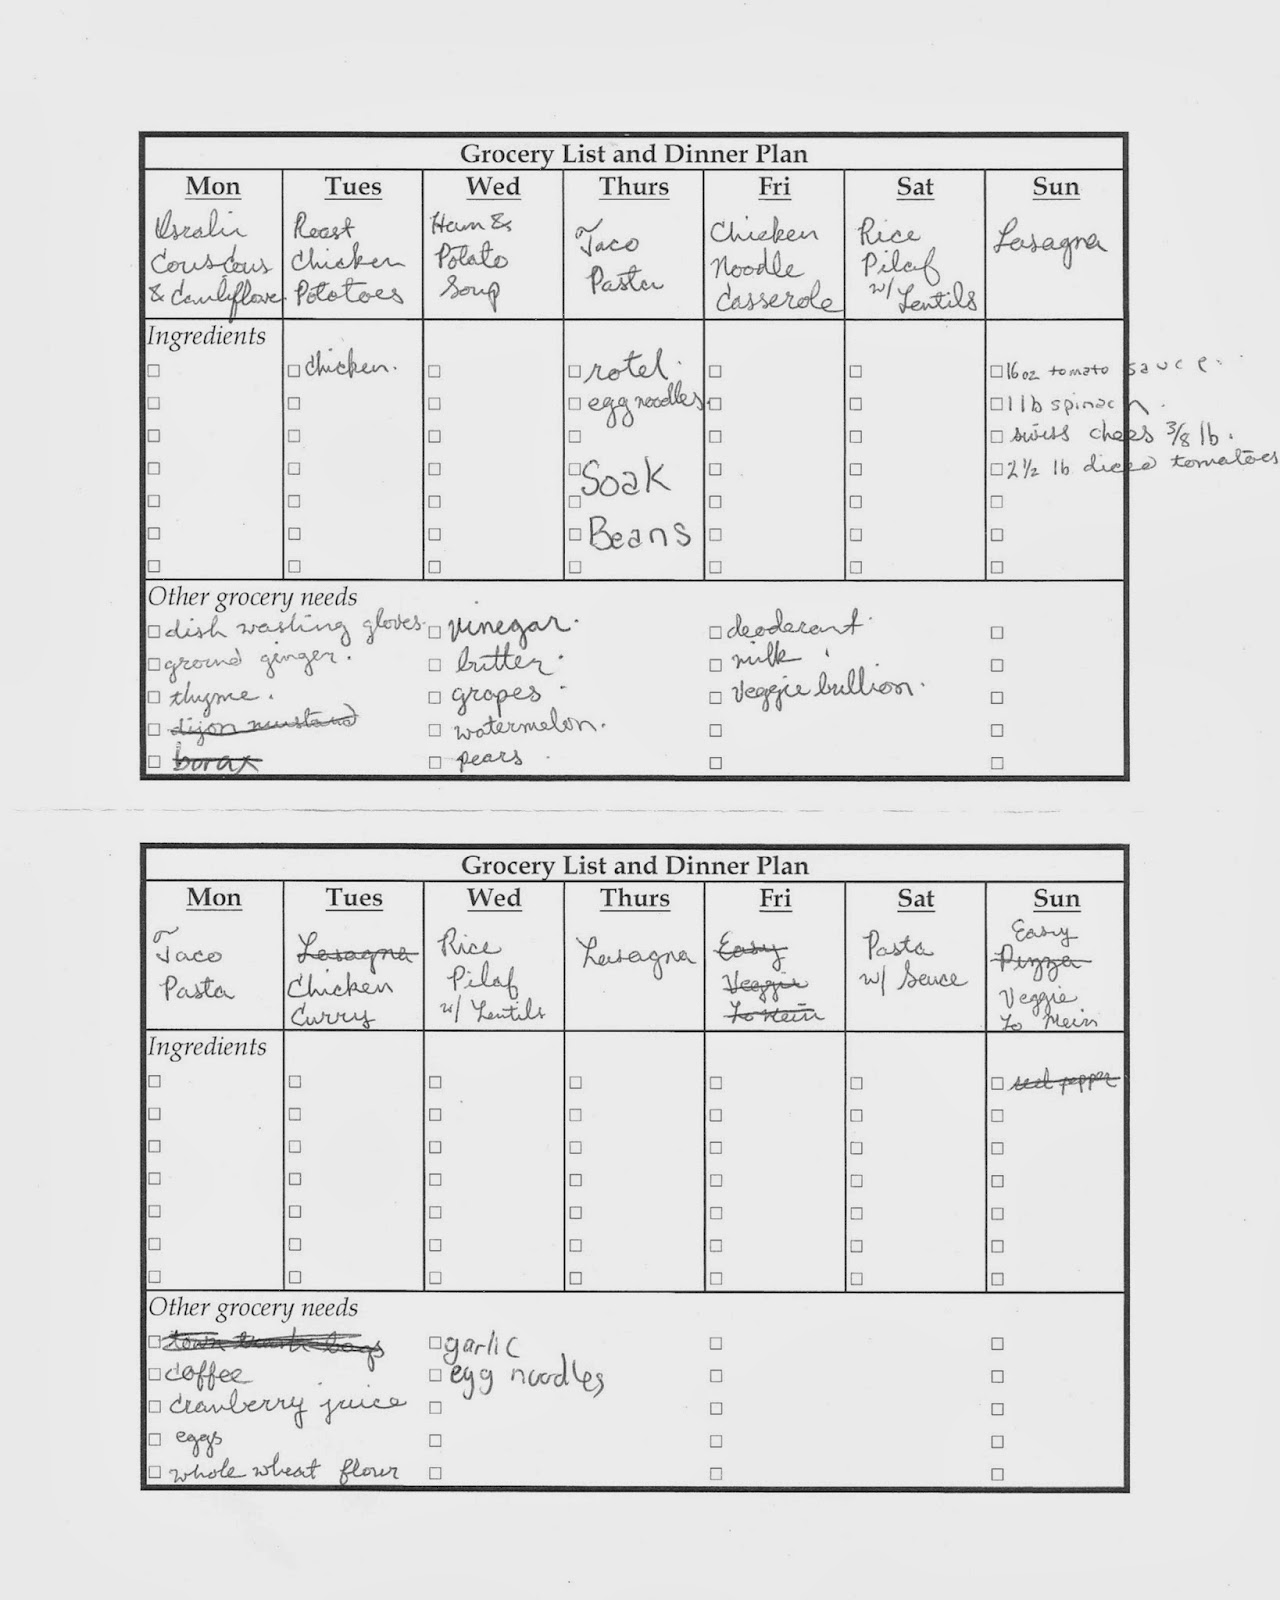 Grocery List and Dinner Plan
Mon Tues Wed Thurs Fri Sat Sun
Couscous
& Cauliflower
Roast
Chicken
Potatoes
Ham &
Potato
Soup
Taco
Pasta
Chicken
Noodle
Casserole
Rice
Pilaf
w/ Lentils
Lasagna
Ingredients
chicken.
rotel.
egg noodles.
Soak
Beans
16oz tomato sauce.
1 lb spinach.
swiss chees 3/8 lb.
2 1/2 lb diced tomatoes
Other grocery needs
dish washing gloves.
ground ginger.
thyme.
dijon mustard
borax
vinegar.
butter.
grapes
watermelon.
pears
deoderant.
milk
veggie bullion.
Grocery List and Dinner Plan
Mon Tues Wed Thurs Fri Sat Sun
Taco
Pasta
Lasagna
Chicken
Curry
Rice
Pilaf
w/ Lentils
Lasagna
Easy
Veggie
Lo Mein
Pasta
w/ Sauce
Easy
Pizza
Veggie
Lo Mein
Ingredients
pepper
Other grocery needs
town trash bags
coffee
cranberry juice
eggs
whole wheat flour
garlic
egg noodles